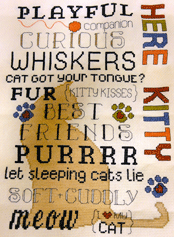 PLAYFUL
companion
CURIOUS
WHISKERS
CAT GOT YOUR TONGUE?
FUR {KITTY KISSES}
BEST
FRIENDS
PURRRR
let sleeping cats lie
SOFT-CUDDLY
meow {I ♥ MY CAT}
HERE KITTY KITTY